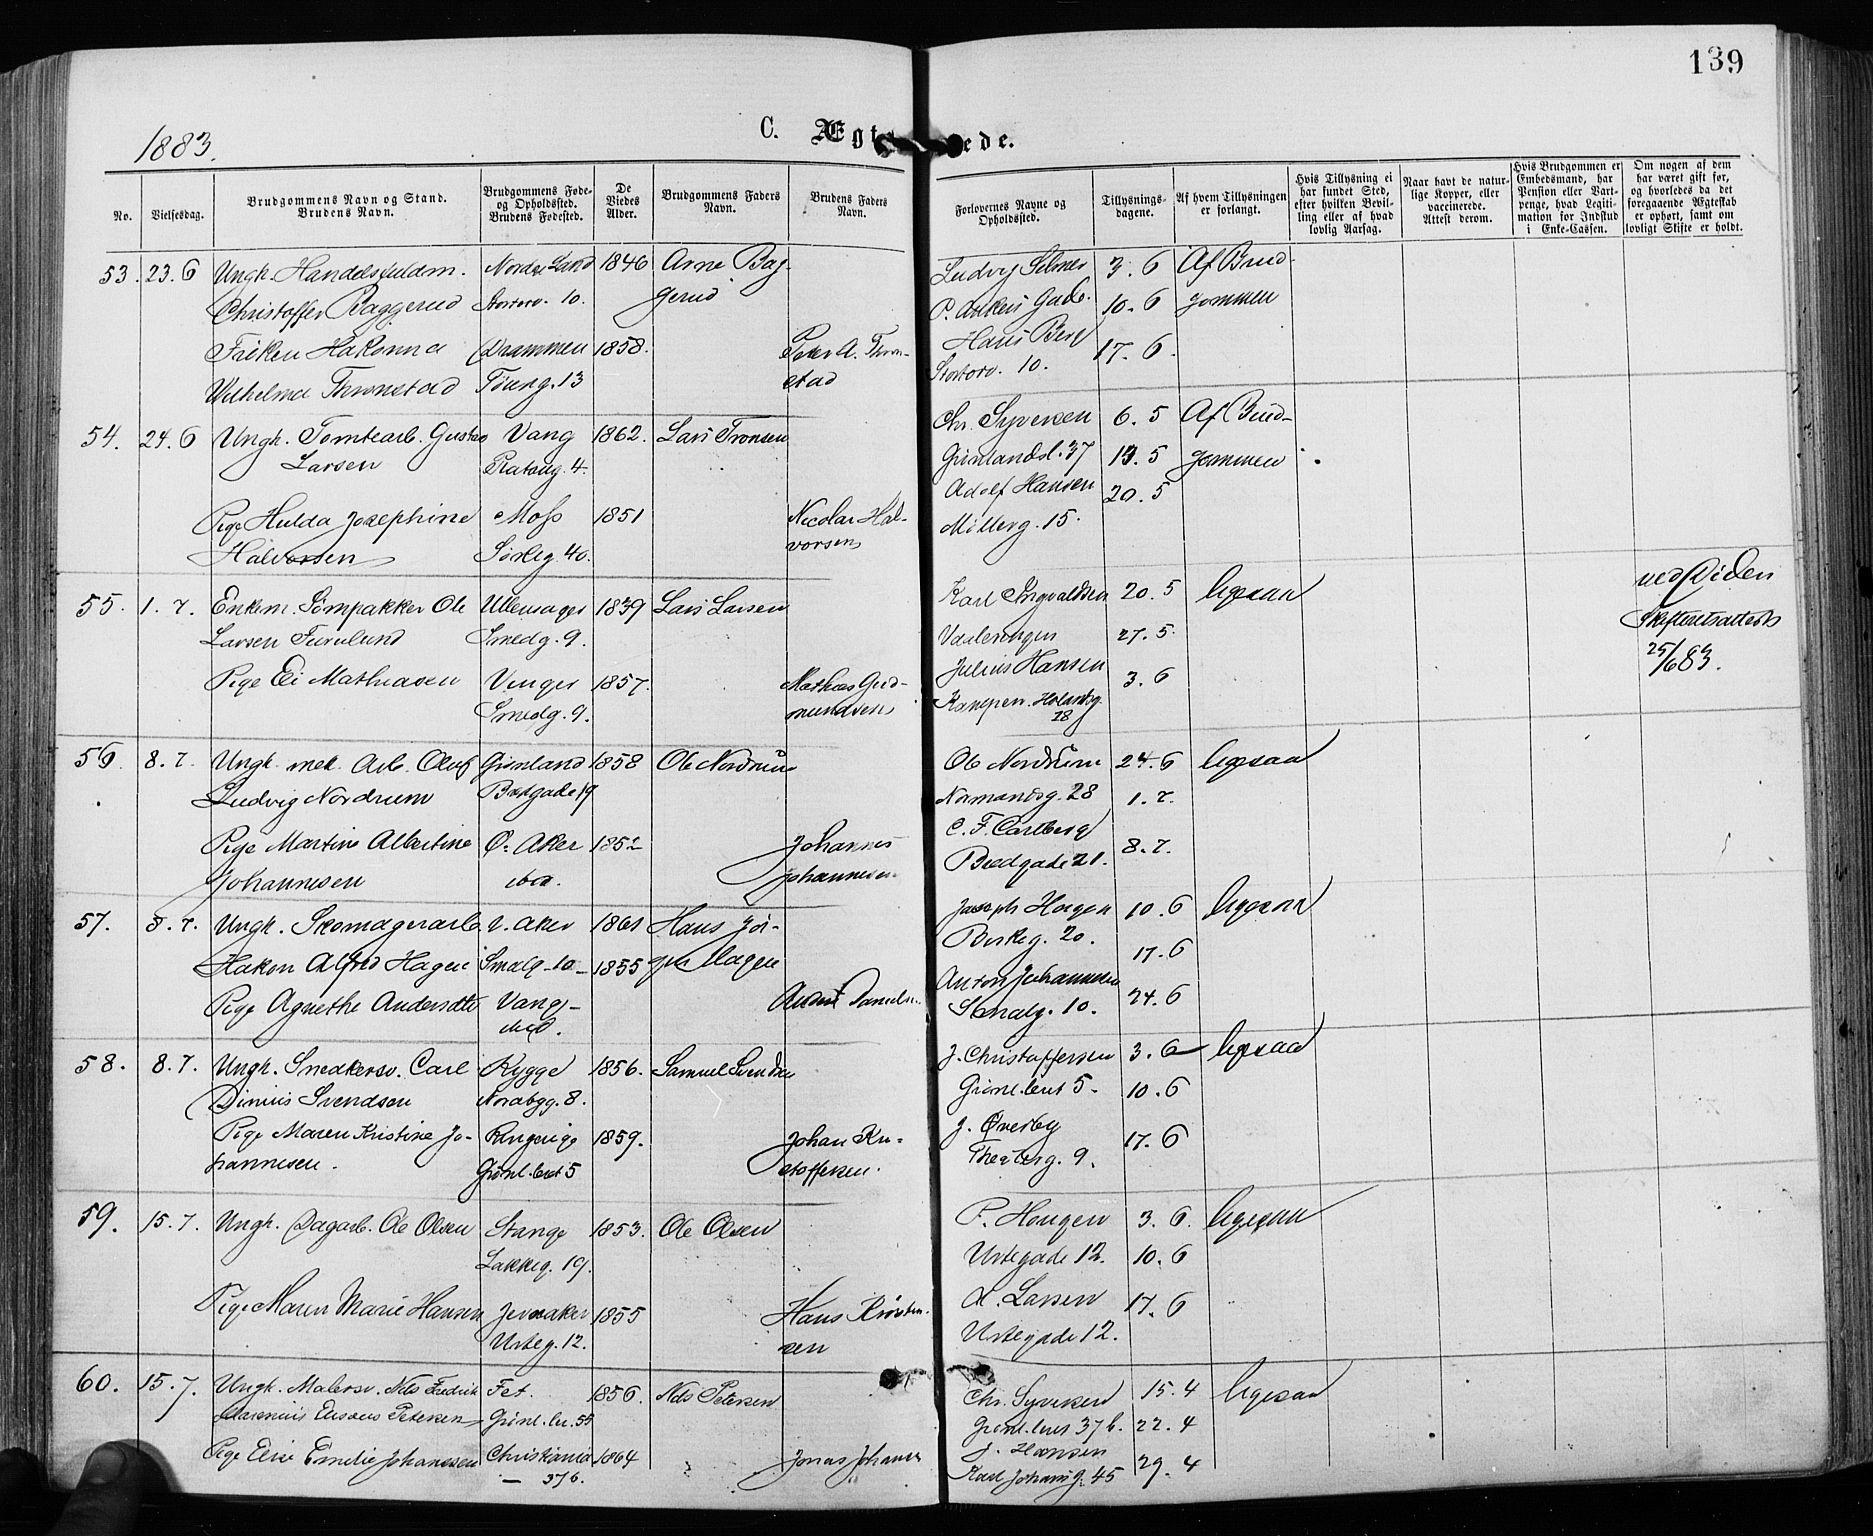 139
1883.
C. Ægt ede.
No.
Vielsesdag.
Brudgommens Navn og Stand.
Brudens Navn.
Brudgommens Føde-
og Opholdssted.
Brudens Fødested.
De
Viedes
Alder.
Brudgommens Faders
Navn.
Brudens Faders
Navn.
Forlovernes Navne og
Opholdssted.
Tillysnings-
dagene.
Af hvem Tillysningen
er forlangt.
Hvis Tillysning ei
har fundet Sted,
efter hvilken Bevil-
ling eller af hvad
lovlig Aarsag.
Naar havt de natur-
lige Kopper, eller
vaccinerede.
Attest derom.
Hvis Brudgommen er
Embedsmand, har
Pension eller Vart-
penge, hvad Legiti-
mation for Indskud
i Enke-Cassen.
Om nogen af dem
har været gift før,
og hvorledes da det
foregaaende Ægteskab
er ophørt, samt om
lovligt Skifte er holdt.
53. 23.6 Ungk. Handelsfuldm. Nordre Land 1846 Arne Bag- Ludvig 3.6 Af Brud-
Christoffer Baggerud Stortorv. 10. gerud P. Ankers Gade. 10.6 gommen
Frøken Hakonna Drammen 1858. Peter A. Thron- Hans Berg 17.6.
Wilhelma Thronstad 13 stad Stortorv. 10.
54. 24.6 Ungk. Tomtearb. Gustav Vang 1862. Lars Tronsen Chr. Syversen 6.5 Af Brud-
Larsen Platoug. 4. Grønlandsl. 37 13.5 gommen
Adolf Hansen 20.5
Pige Hulda Josephine Moss 1851 Nicolai Hal- Møllerg. 15.
Halvorsen Sørlig. 40. vorsen
55. 1.7. Enkem. Tømpakker Ole Ullensager 1839 Lars Larsen Karl Ingvaldsen 20.5 ligesaa ved Døden
Larsen Furulund Smedg. 9. Vaalerengen 27.5. Skifteretsattest
Julius Hansen 25/6 83.
Pige Eli Mathiasen Vinger 1857. Mathias Gud- 3.6
Smedg. 9. mundsen Kampen. Holandsg. 28
56. 8.7. Ungk. mek. Arb. Oluf Grønland 1858 Ole Nordrum Ole Nordrum 24.6 ligesaa
Ludvig Nordrum Bredgade 19 Normandsg. 28 1.7.
C. F. Carlberg
Pige Martine Albertine Ø. Aker 1852 Johannes 8.7.
Johannesen ibid. Johannesen Bredgade 21.
57. 8.7. Ungk. Skomagerarb. V. Aker 1861 Hans Jør- Joseph Hagen 10.6 ligesaa
Hakon Alfred Hagen Smalg. 10 1855 gen Hagen Borkeg. 20. 17.6
Pige Agnethe Andersdtr Vang- Anders Daniels. Anton Johannesen 24.6
ibid. Smalg. 10.
58. 8.7. Ungk. Snedkersv. Carl Rygge 1856. Samuel Svendsen J. Christoffersen 3.6 ligesaa
Dinius Svendsen Norabyg. 8. Grønl.leret 5 10.6
Pige Maren Kristine Jo- Ringerige 1859. Johan Kri- J. Øverby 17.6
hannesen. Grønl.leret 5 stoffersen. Theaterg. 9.
59. 15.7. Ungk. Dagarb. Ole Olsen Stange 1853. Ole Olsen P. Haugen 3.6. ligesaa
Lakkeg. 19. Urtegade 12. 10.6
Pige Maren Marie Hansen Jevnaker 1855 Hans Kristen- A. Larsen 17.6
Urteg. 12. sen Urtegade 12.
60. 15.7. Ungk. Malersv. Nils Fredrik Fet. 1856. Nils Petersen Chr. Syversen 15.4 ligesaa
Petersen Grønl.ler. 55 Grønl.leret 37 b. 22.4
J. Hansen
Pige Elise Emilie Johansen Christiania 1864 Jonas Johansen 29.4
— 37 b. Karl Johansg. 45